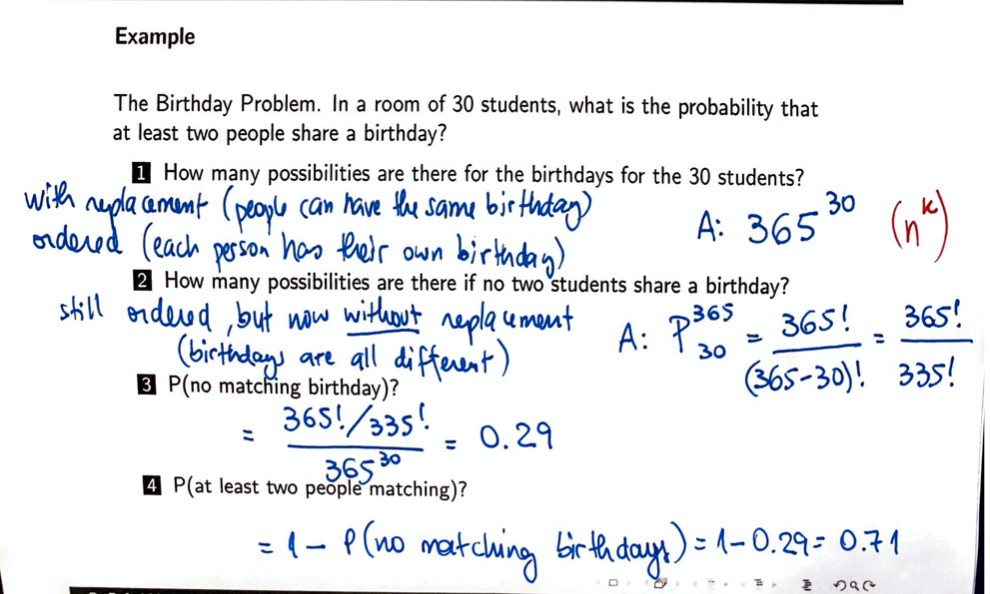 Example
The Birthday Problem. In a room of 30 students, what is the probability that
at least two people share a birthday?
1 How many possibilities are there for the birthdays for the 30 students?
with replacement (people can have the same birthday)
ordered (each person has their own birthday)
A: 365^30 (n^k)
2 How many possibilities are there if no two students share a birthday?
still ordered, but now without replacement
(birthdays are all different)
A: P^365_30 = 365!/(365-30)! = 365!/335!
3 P(no matching birthday)?
= (365!/335!)/365^30 = 0.29
4 P(at least two people matching)?
= 1 - P(no matching birthdays) = 1-0.29 = 0.71